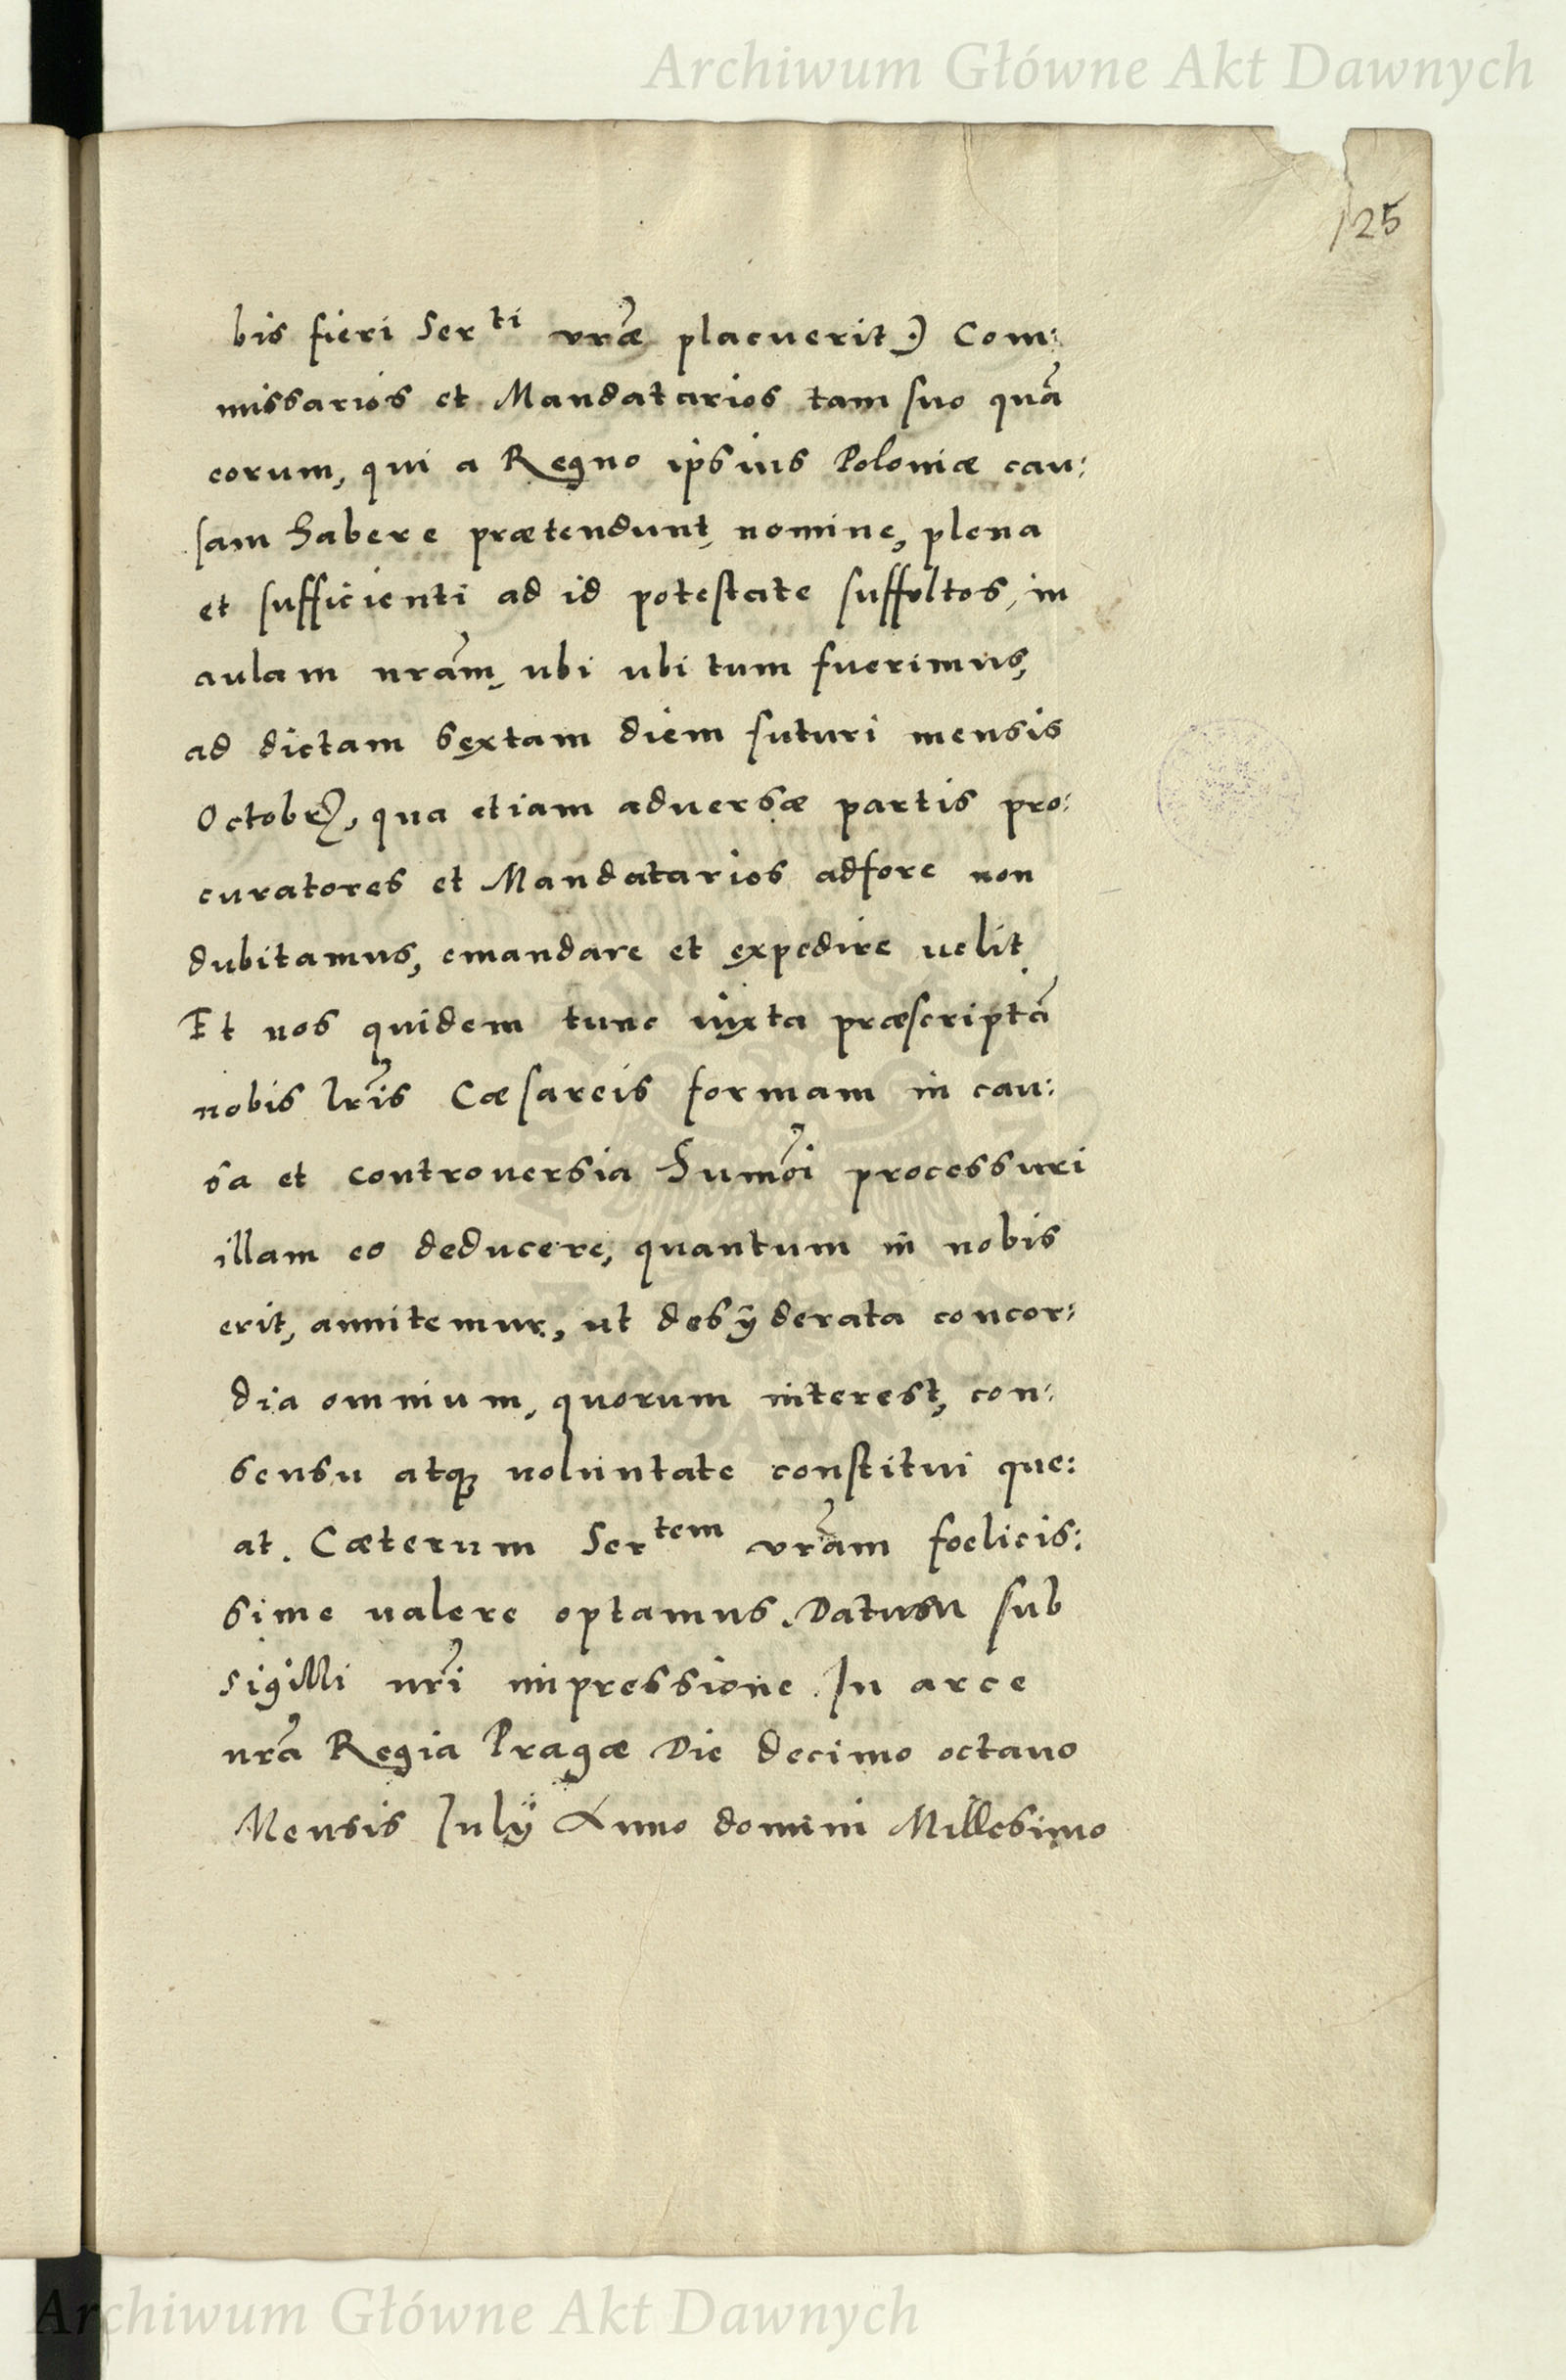 Archiwum Główne Akt Dawnych
125
bis fieri Ser^ti vrãe placuerit.) Com:
missarios et Mandatarios tam suo quã
eorum, qui a Regno ipsius Poloniæ cau:
sam habere prætendunt, nomine, plena
et sufficienti ad id potestate suffultos, in
aulam nrãm, ubi ubi tum fuerimus,
ad dictam sextam diem futuri mensis
Octobr, qua etiam adversæ partis pro:
curatores et Mandatarios adfore non
dubitamus, emandare et expedire uelit.
Et nos quidem tunc iuxta præscriptã
nobis lrĩs Cæsareis formam in cau:
sa et controuersia humõi processuri
illam eo deducere, quantum in nobis
erit, annitemur, ut desÿderata concor:
dia omnium, quorum interest, con:
sensu atq; uoluntate constitui que:
at. Cæterum Ser^tem vrãm foelicis:
sime ualere optamus. Datum sub
sigilli nrĩ impressione In arce
nrã Regia Pragæ Die decimo octauo
Mensis Julÿ Anno domini Millesimo
Archiwum Główne Akt Dawnych